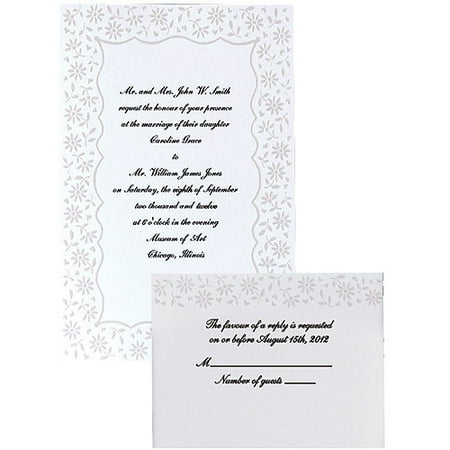 Mr. and Mrs. John W. Smith
request the honour of your presence
at the marriage of their daughter
Caroline Grace
to
Mr. William James Jones
on Saturday, the eighth of September
two thousand and twelve
at 6 o'clock in the evening
Museum of Art
Chicago, Illinois
The favour of a reply is requested
on or before August 15th, 2012
M
Number of guests